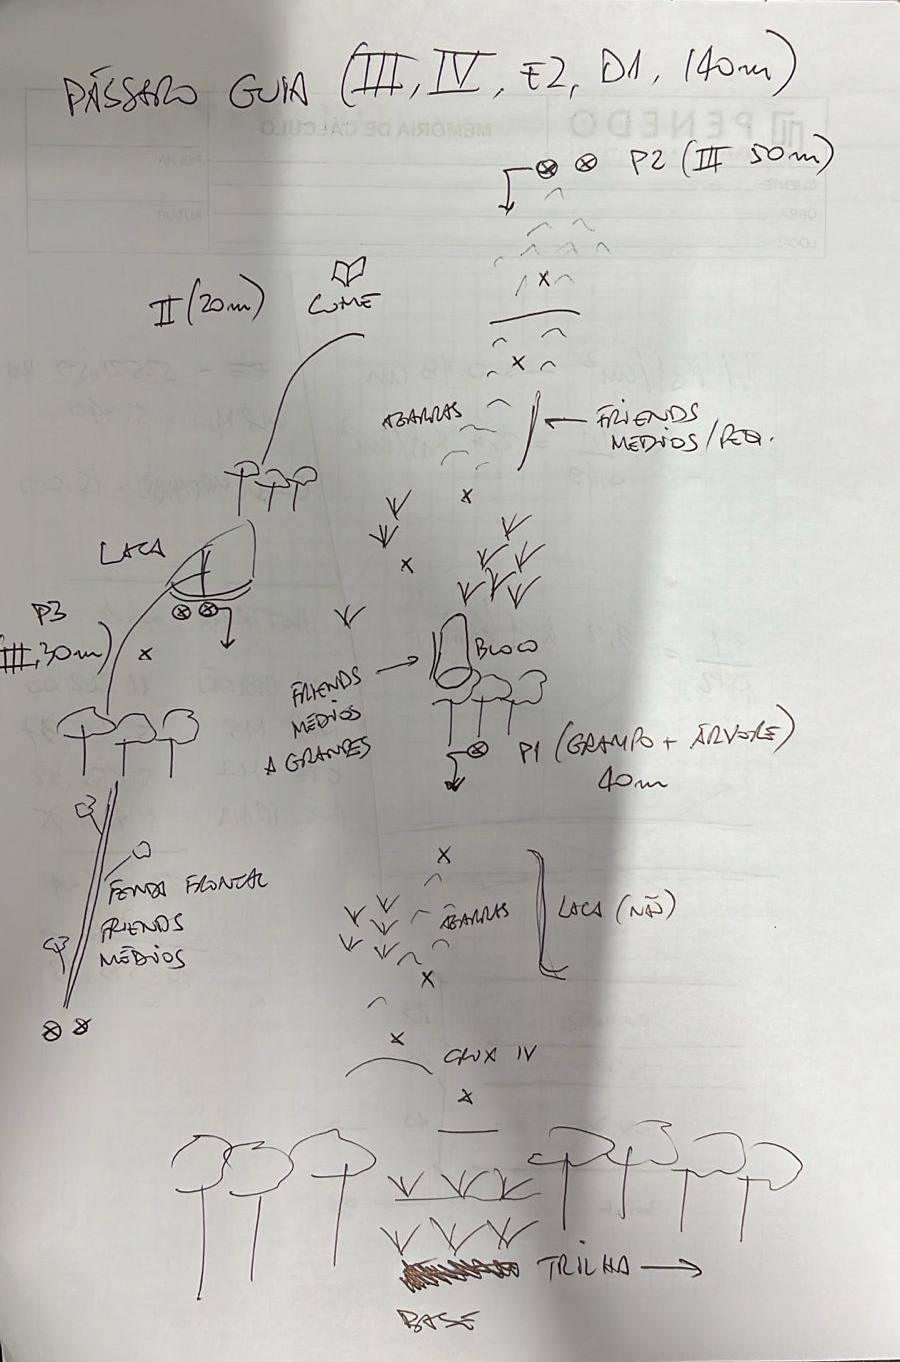 PÁSSARO GUIA (III, IV, E2, D1, 140m)
P2 (III 50m)
II (20m)
CUME
ABARRAS
FRIENDS
MÉDIOS/PEQ.
LACA
P3
(III, 30m)
BLOCO
FRIENDS
MÉDIOS
A GRANDES
P1 (GRAMPO + ÁRVORE)
40m
FENDA FRONTAL
FRIENDS
MÉDIOS
ABARRAS
LACA (NÃO)
CRUX IV
TRILHA
BASE
PENEDO
MEMÓRIA DE CÁLCULO
FOLHA
CLIENTE
OBRA
AUTOR
LOCAL